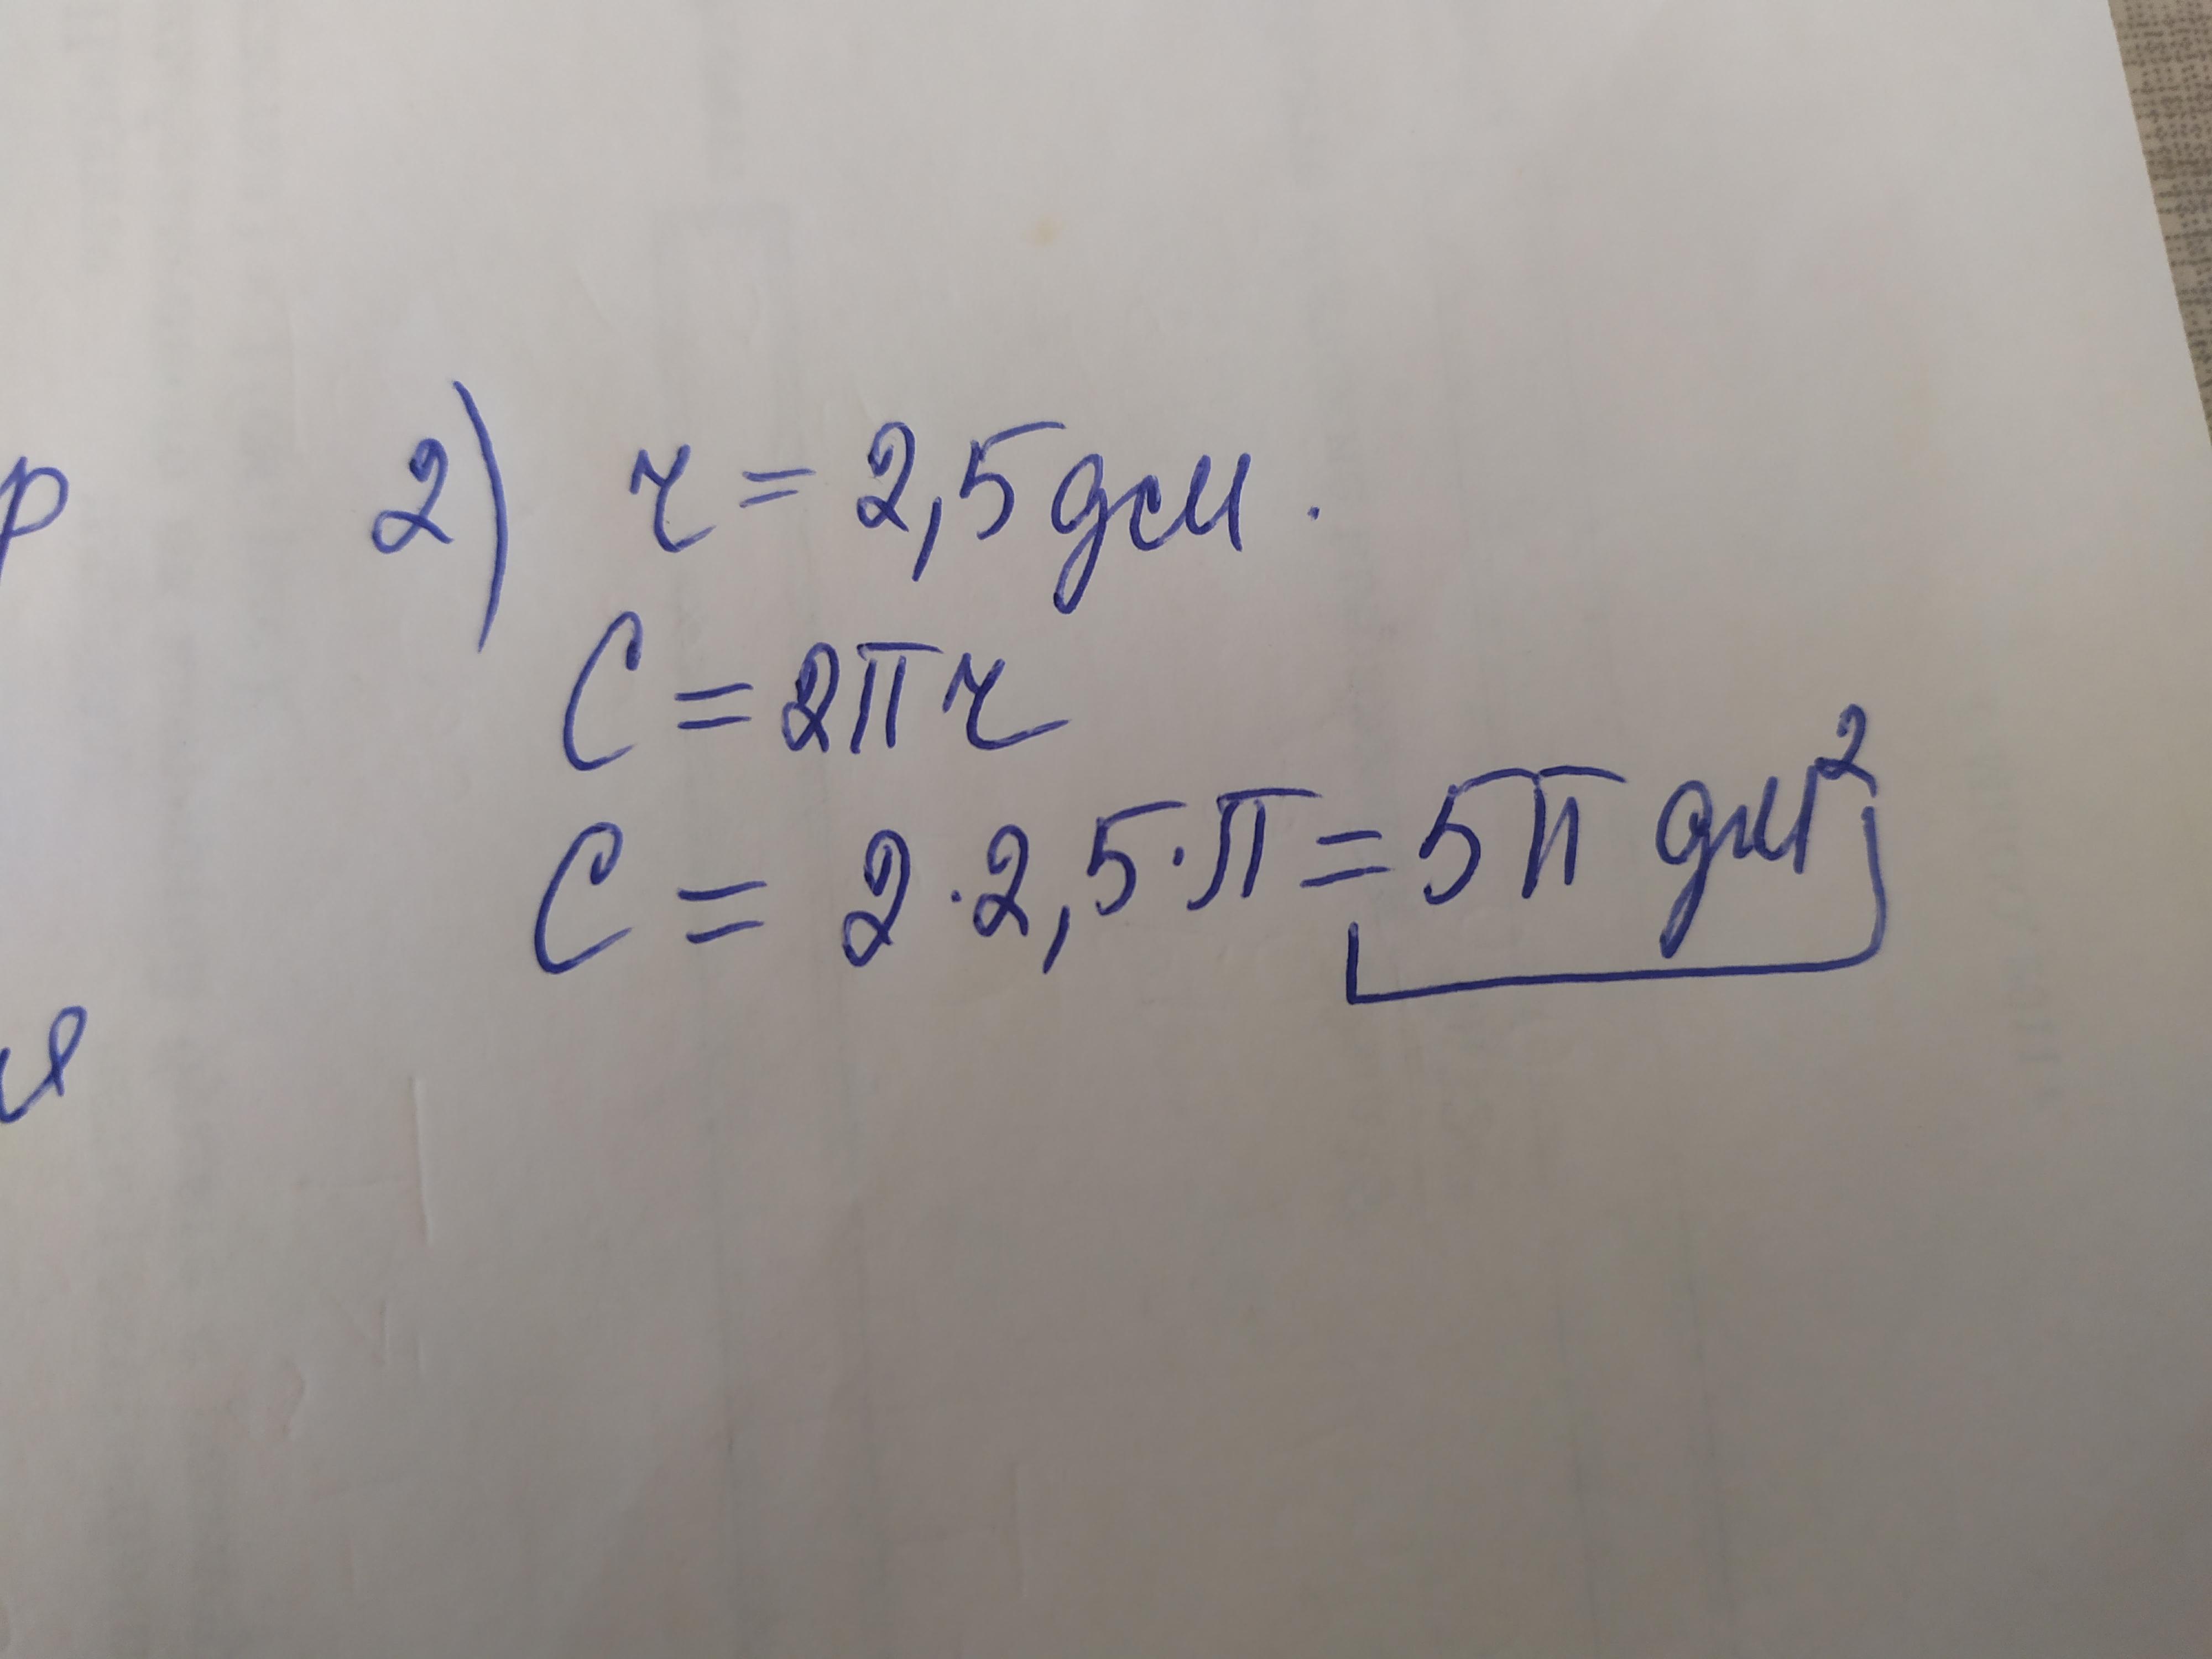 2) r = 2,5 дсм.
C = 2πr
C = 2·2,5·π = 5π дм²